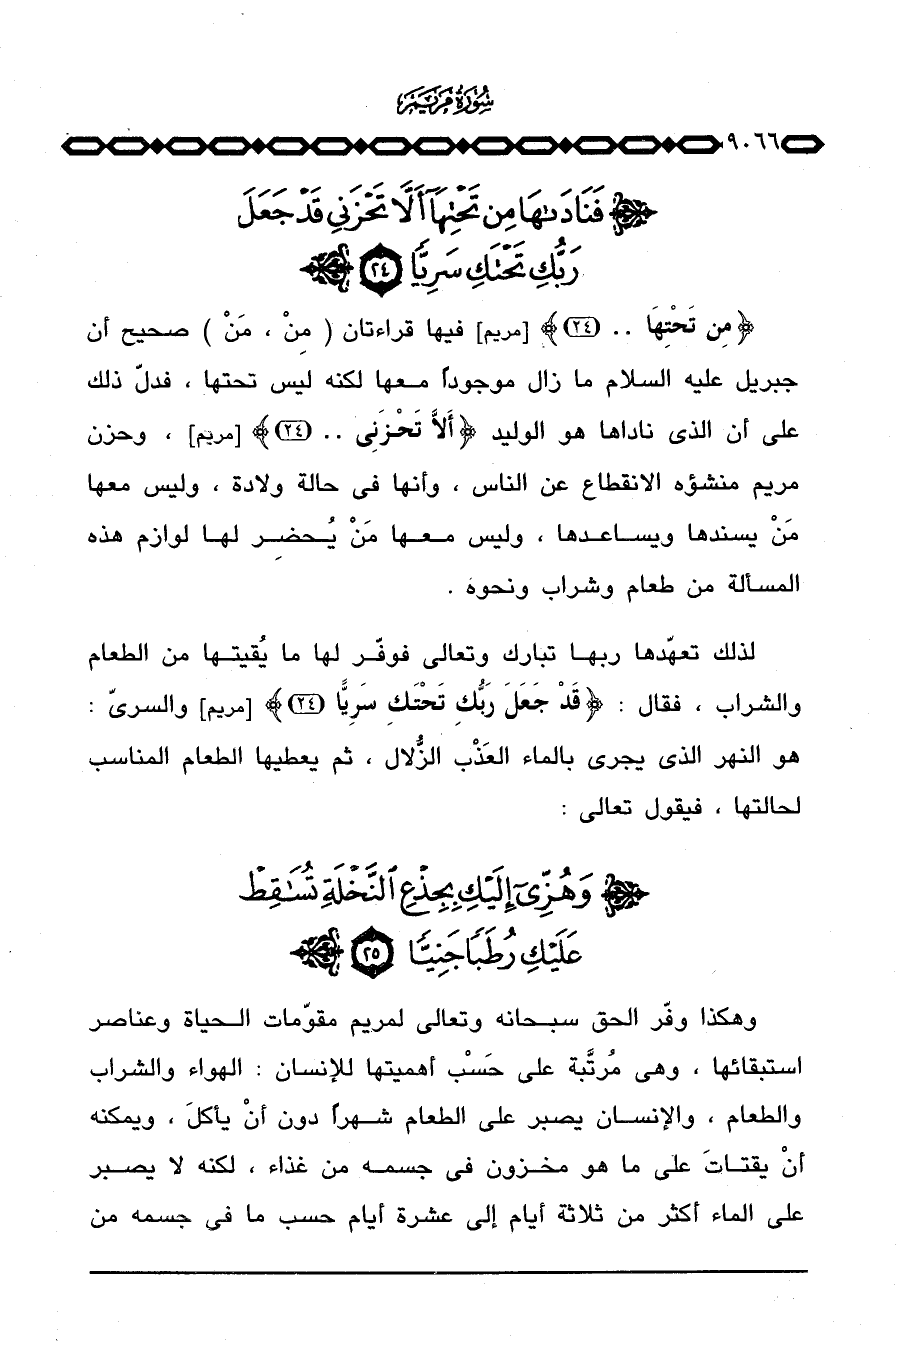 سُورَةُ مَرْيَمَ
٩٠٦٦
فَنَادَىٰهَا مِن تَحْتِهَآ أَلَّا تَحْزَنِى قَدْ جَعَلَ
رَبُّكِ تَحْتَكِ سَرِيًّا ٢٤
﴿مِن تَحْتِهَا .. (٢٤)﴾ [مريم] فيها قراءتان ( مِنْ ، مَنْ ) صحيح أن
جبريل عليه السلام ما زال موجوداً معها لكنه ليس تحتها ، فدلّ ذلك
على أن الذى ناداها هو الوليد ﴿أَلاَّ تَحْزَنِى .. (٢٤)﴾ [مريم] ، وحزن
مريم منشؤه الانقطاع عن الناس ، وأنها فى حالة ولادة ، وليس معها
مَنْ يسندها ويساعدها ، وليس معها مَنْ يُحضِر لها لوازم هذه
المسألة من طعام وشراب ونحوه .
لذلك تعهّدها ربها تبارك وتعالى فوفّر لها ما يُقيتها من الطعام
والشراب ، فقال : ﴿قَدْ جَعَلَ رَبُّكِ تَحْتَكِ سَرِيًّا (٢٤)﴾ [مريم] والسرىّ :
هو النهر الذى يجرى بالماء العَذْب الزُّلال ، ثم يعطيها الطعام المناسب
لحالتها ، فيقول تعالى :
وَهُزِّىٓ إِلَيْكِ بِجِذْعِ ٱلنَّخْلَةِ تُسَٰقِطْ
عَلَيْكِ رُطَبًا جَنِيًّا ٢٥
وهكذا وفّر الحق سبحانه وتعالى لمريم مقوّمات الحياة وعناصر
استبقائها ، وهى مُرتَّبة على حَسْب أهميتها للإنسان : الهواء والشراب
والطعام ، والإنسان يصبر على الطعام شهراً دون أنْ يأكلَ ، ويمكنه
أنْ يقتاتَ على ما هو مخزون فى جسمه من غذاء ، لكنه لا يصبر
على الماء أكثر من ثلاثة أيام إلى عشرة أيام حسب ما فى جسمه من